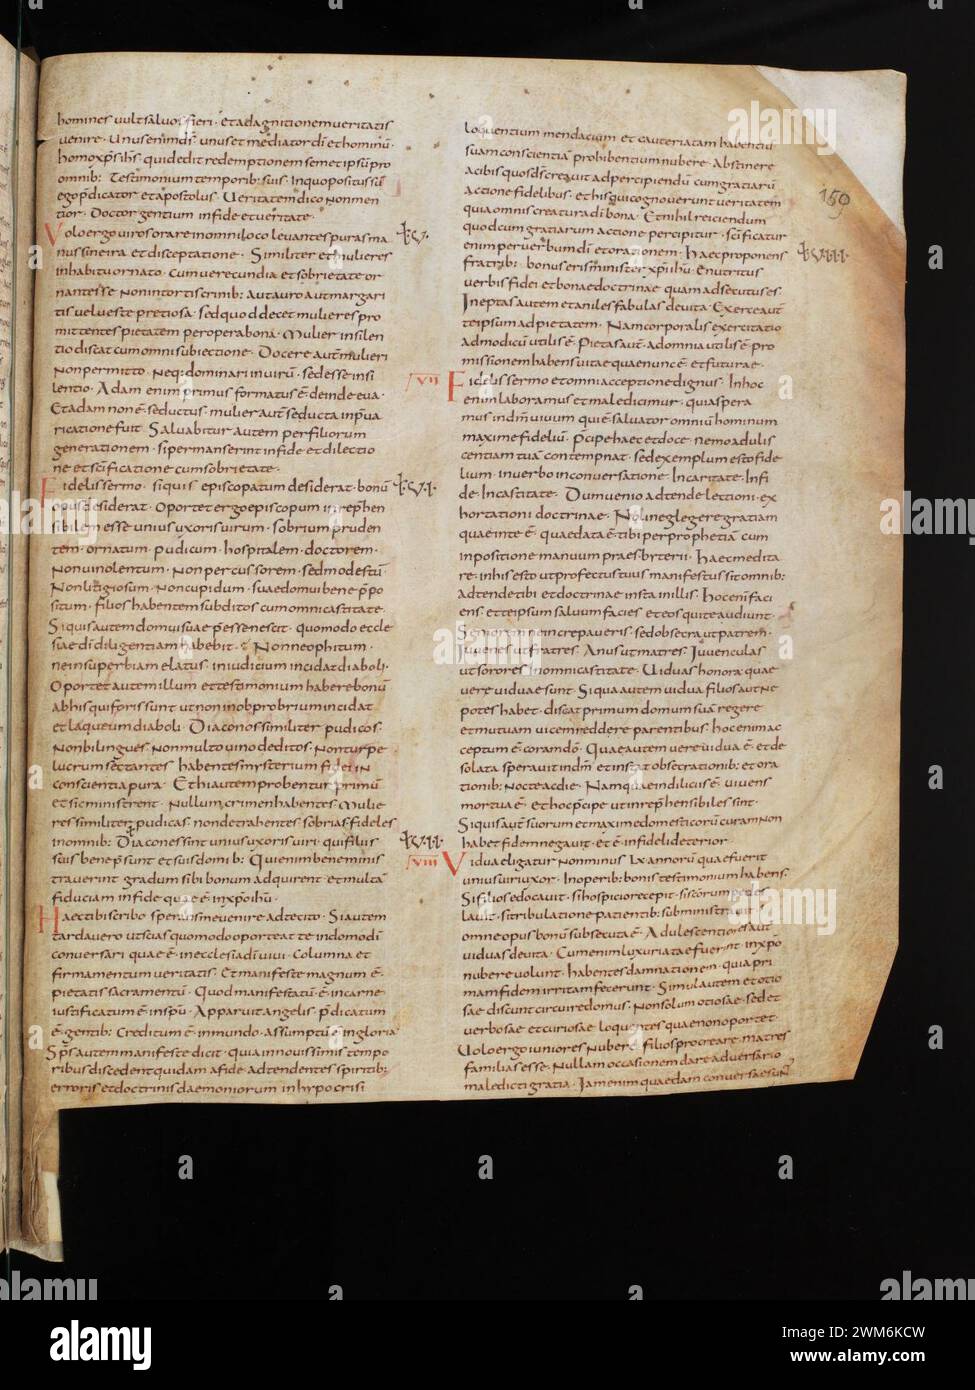 homines vult saluos fieri · et ad agnitionem veritatis
venire · Unus enim ds̄ · unus et mediator dī et hominū ·
homo xp̄s ih̄s · qui dedit redemptionem semet ipsū pro
omnib: Testimonium temporib: suis · In quo positus sū
ego p̄dicator et apostolus · Veritatem dico non men
tior · Doctor gentium in fide et veritate ·
Volo ergo viros orare in omni loco leuantes puras ma
nus sine ira et disceptatione · Similiter et mulieres
in habitu ornato · Cum verecundia et sobrietate or
nantes se · Non in tortis crinib: aut auro aut margari
tis vel veste pretiosa · sed quod decet mulieres pro
mittentes pietatem per opera bona · Mulier in silen
tio discat cum omni subiectione · Docere autē mulieri
non permitto · Neq: dominari in virū · sed esse in si
lentio · Adam enim primus formatus ē · deinde eva ·
Et adam non ē seductus · mulier aut̄ seducta in p̄va
ricatione fuit · Salvabitur autem per filiorum
generationem · si permanserint in fide et dilectio
ne et sc̄ificatione cum sobrietate ·
Fidelis sermo · si quis episcopatum desiderat · bonū
opus desiderat · Oportet ergo episcopum inrep̄hen
sibilem esse · unius uxoris virum · sobrium pruden
tem · ornatum · pudicum · hospitalem · doctorem ·
Non vinolentum · non percussorem · sed modestū ·
Non litigiosum · non cupidum · suae domui bene p̄po
situm · filios habentem subditos cum omni castitate ·
Si quis autem domui suae p̄esse nescit · quomodo eccle
siae dī diligentiam habebit · Non neophitum ·
ne in superbiam elatus · in iudicium incidat diaboli ·
Oportet autem illum et testimonium habere bonū
ab his qui foris sunt ut non in obprobrium incidat
et laqueum diaboli · Diaconos similiter pudicos ·
non bilingues · non multo vino deditos · non turpe
lucrum sectantes · habentes mysterium fidei in
conscientia pura · Et hi autem probentur primū
et sic ministrent · Nullum crimen habentes · Mulie
res similiter pudicas · non detrahentes · sobrias · fideles
in omnib: Diacones sint unius uxoris viri · qui filiis
suis bene p̄sunt et suis domib: Qui enim bene minis
traverint · gradum sibi bonum adquirent · et multā
fiduciam in fide quae ē in xp̄o ihū ·
Haec tibi scribo sperans me venire ad te cito · Si autem
tardavero ut scias quomodo oporteat te in domo dī
conversari quae ē · in ecclesia dī vivi · Columna et
firmamentum veritatis · Et manifeste magnum ē ·
pietatis sacramentū · Quod manifestatū ē in carne
iustificatum ē in sp̄u · Apparvit angelis · p̄dicatum
ē · gentib: Creditum ē in mundo · assumptū ē in gloria
Sp̄s autem manifeste dicit · quia in novissimis tempo
ribus discedent quidam a fide · adtendentes spiritib:
erroris et doctrinis daemoniorum in hypocrisi
loquentium mendacium et cauteriatam habentiū
suam conscientiā prohibentium nubere · Abstinere
a cibis quos ds̄ creavit ad percipiendū cum gratiarū
actione fidelibus · et his qui cognoverunt veritatem
quia omnis creatura dī bona · Et nihil reiciendum
quod cum gratiarum actione percipitur · sc̄ificatur
enim per verbum dī et orationem · Haec proponens
fratrib: bonus eris minister xp̄i ihū · Enutritus
verbis fidei et bonae doctrinae quam adsecutus es ·
Ineptas autem et aniles fabulas devita · Exerce aut̄
te ipsum ad pietatem · Nam corporalis exercitatio
ad modicū utilis ē · Pietas aut̄ ad omnia utilis ē pro
missionem habens vitae quae nunc ē et futurae ·
Fidelis sermo et omni acceptione dignus · In hoc
enim laboramus et maledicimur · quia spera
mus in dm̄ vivum qui ē salvator omniū hominum
maxime fideliū · P̄cipe haec et doce · nemo adulis
centiam tuā contempnat · sed exemplum esto fide
lium · in verbo in conversatione · In caritate · In fi
de · In castitate · Dum venio adtende lectioni · ex
hortationi doctrinae · Noli neglegere gratiam
quae in te ē · quae data ē tibi per prophetiā cum
inpositione manuum praesbyterii · Haec medita
re · in his esto ut profectus tuus manifestus sit omnib:
adtende tibi et doctrinae · insta in illis · Hoc enī faci
ens · et te ipsum salvum facies · et eos qui te audiunt ·
Seniorem ne increpaveris · sed obsecra ut patrem ·
Iuvenes ut fratres · Anus ut matres · Iuvenculas
ut sorores in omni castitate · Viduas honora · quae
vere viduae sunt · Si qua autem vidua filios aut ne
potes habet · discat primum domum suā regere
et mutuam vicem reddere parentibus · hoc enim ac
ceptum ē coram dō · Quae autem vere vidua ē · et de
solata speravit in dm̄ · et instat obsecrationib: et ora
tionib: nocte ac die · Nam quae in diliciis ē vivens
mortua ē · et hoc p̄cipe ut inrep̄hensibiles sint ·
Si quis aut̄ suorum et maxime domesticorū curam non
habet fidem negavit · et ē infideli deterior
Vidua eligatur non minus lx annorū quae fuerit
unius viri uxor · In operib: bonis testimonium habens ·
Si filios edocavit · si hospitio recepit · si sc̄orum pedes
lavit · si tribulatione patientib: subministravit · si
omne opus bonū subsecuta ē · Adulescentiores aut̄
viduas devita · Cum enim luxuriatae fuerint in xp̄o
nubere volunt · habentes damnationem · quia pri
mam fidem irritam fecerunt · Simul autem et otio
sae discunt circuire domus · Non solum otiosae · sed et
verbosae et curiosae · loquentes quae non oportet
Volo ergo iuniores nubere · filios procreare · matres
familias esse · Nullam occasionem dare adversario
maledicti gratia · Iam enim quaedam conversae sūn̄
VII
VIII
159
alamy
Image ID: 2WM6KCW
www.alamy.com